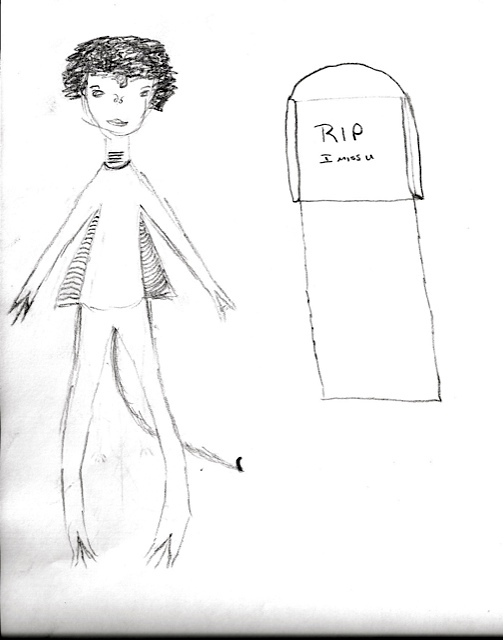 RIP
I MISS U